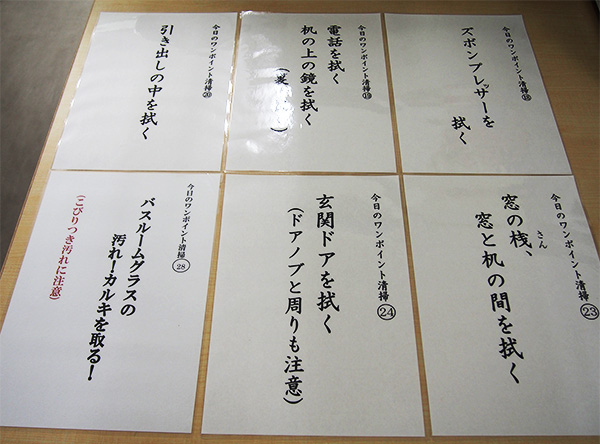 今日のワンポイント清掃⑱
ズボンプレッサーを
拭く
今日のワンポイント清掃⑲
電話を拭く
机の上の鏡を拭く
今日のワンポイント清掃⑳
引き出しの中を拭く
今日のワンポイント清掃㉓
さん
窓の桟、
窓と机の間を拭く
今日のワンポイント清掃㉔
玄関ドアを拭く
(ドアノブと周りも注意)
今日のワンポイント清掃㉘
バスルームグラスの
汚れ!カルキを取る!
(こびりつき汚れに注意)